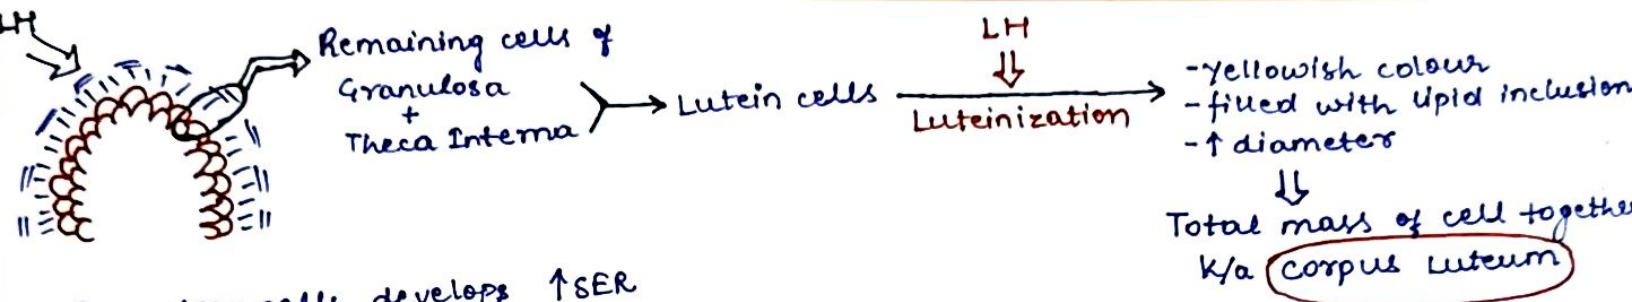 LH
Remaining cells of
Granulosa
+
Theca Interna
Lutein cells
LH
Luteinization
-yellowish colour
-filled with lipid inclusion
-↑ diameter
Total mass of cell togethe
k/a corpus luteum
develops ↑SER